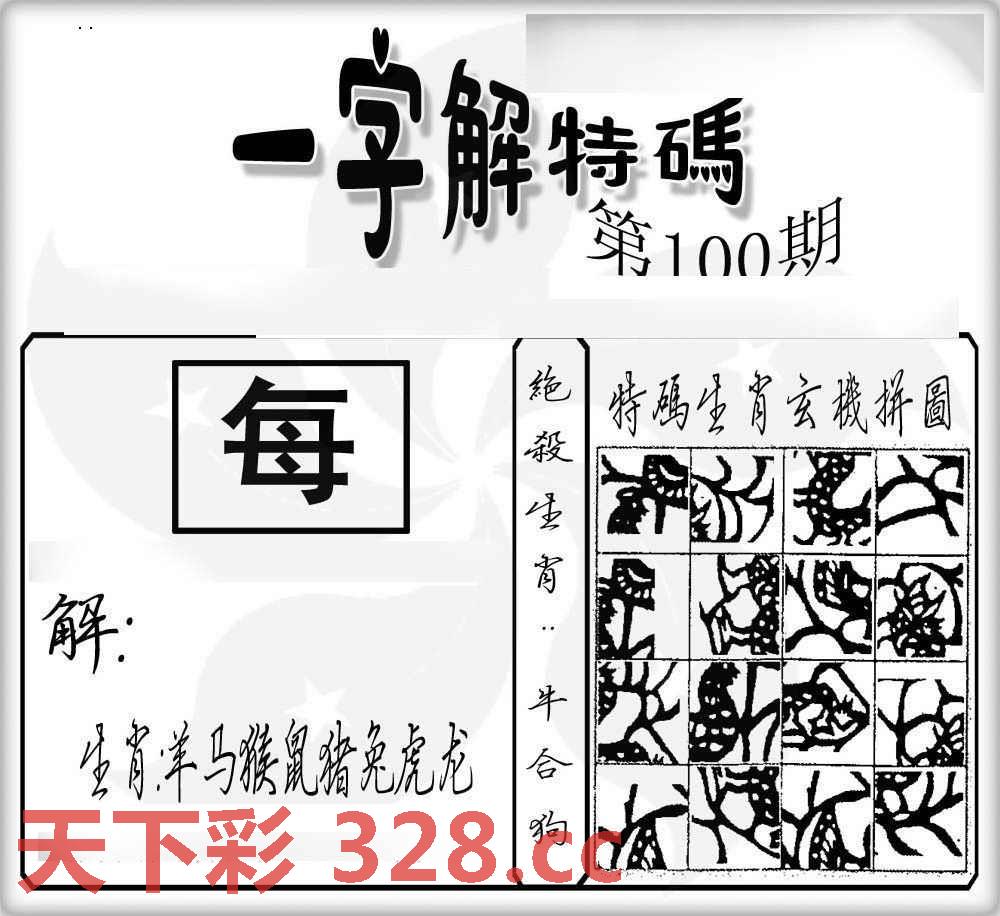 一字解特碼
第100期
每
解:
生肖:羊马猴鼠猪兔虎龙
絶殺生肖:牛合狗
特碼生肖玄機拼圖
天下彩 328.cc